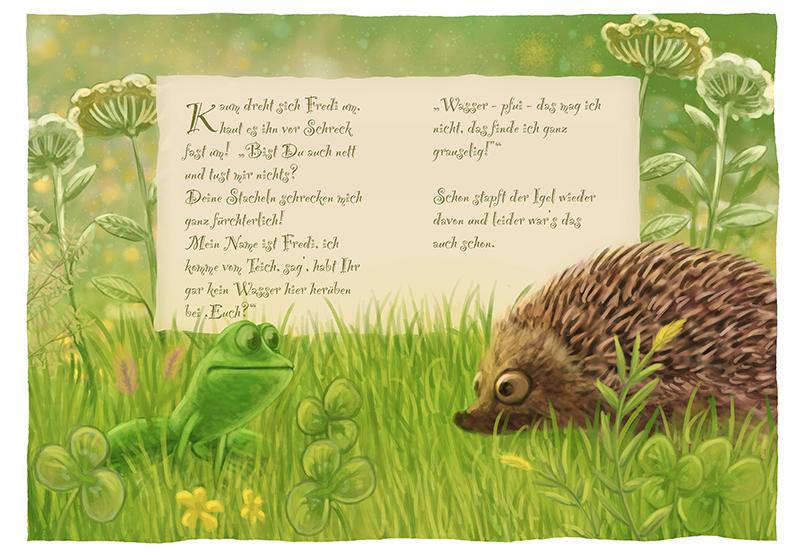 Kaum dreht sich Fredi um,
haut es ihn vor Schreck
fast um! „Bist Du auch nett
und tust mir nichts?
Deine Stacheln schrecken mich
ganz fürchterlich!
Mein Name ist Fredi, ich
komme vom Teich, sag', habt Ihr
gar kein Wasser hier herüben
bei ‚Euch?“
„Wasser - pfui - das mag ich
nicht, das finde ich ganz
grauselig!"“
Schon stapft der Igel wieder
davon und leider war's das
auch schon.